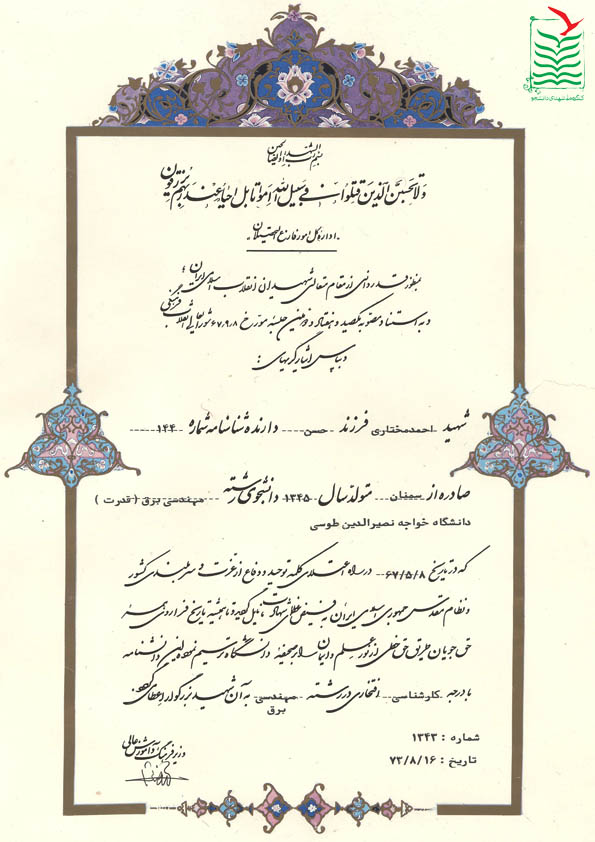 کنگره ملی شهدای دانشجو
بسم رب الشهداء والصالحین
ولا تحسبن الذین قتلوا فی سبیل الله امواتا بل احیاء عند ربهم یرزقون
اداره کل امور فارغ التحصیلان
بمنظور قدردانی از مقام متعالی شهیدان انقلاب اسلامی ایران
و به استناد مصوبه یکصد و هفتاد و دومین جلسه مورخ ۶۷/۹/۸ شورایعالی انقلاب فرهنگی
و بپاس ایثارگریهای :
شهید احمدمختاری فرزند حسن دارنده شناسنامه شماره ۱۴۴
صادره از سمنان متولد سال ۱۳۴۵ دانشجوی رشته مهندسی برق ( قدرت )
دانشگاه خواجه نصیرالدین طوسی
که در تاریخ ۶۷/۵/۸ در راه اعتلای کلمه توحید و دفاع از عزت و سربلندی کشور
و نظام مقدس جمهوری اسلامی ایران به فیض عظمای شهادت نایل گردید تا همیشه تاریخ فرا روی همه
حق جویان طریق حق خطی از نور علم و ایمان را بر صحیفه دانشگاه ترسیم نموده این دانشنامه
با درجه کارشناسی افتخاری در رشته مهندسی برق به آن شهید بزرگوار اعطا می گردد.
شماره : ۱۳۴۳
تاریخ : ۷۳/۸/۱۶
وزیر فرهنگ و آموزش عالی